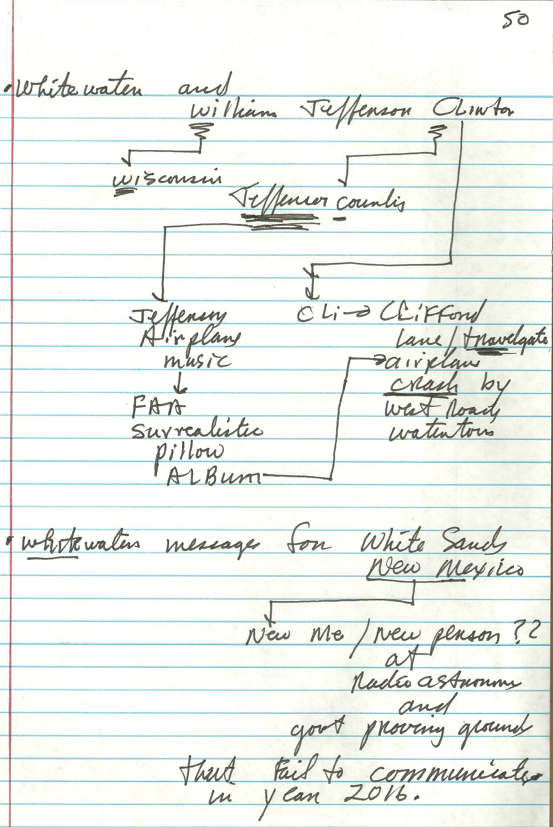 50
• Whitewater and
William Jefferson Clinton
Wisconsin
Jefferson counlis
Jefferson
Airplane
music
FAA
surrealistic
pillow
ALBum
CLi → CLiFFord
Lane / travelgate
airplane
crash by
West Road
watertown
• whitewater messages for White Sands
New Mexico
New Me / New person ??
at
Radio astronomy
and
govt proving ground
that Fail to communicate
in year 2016.